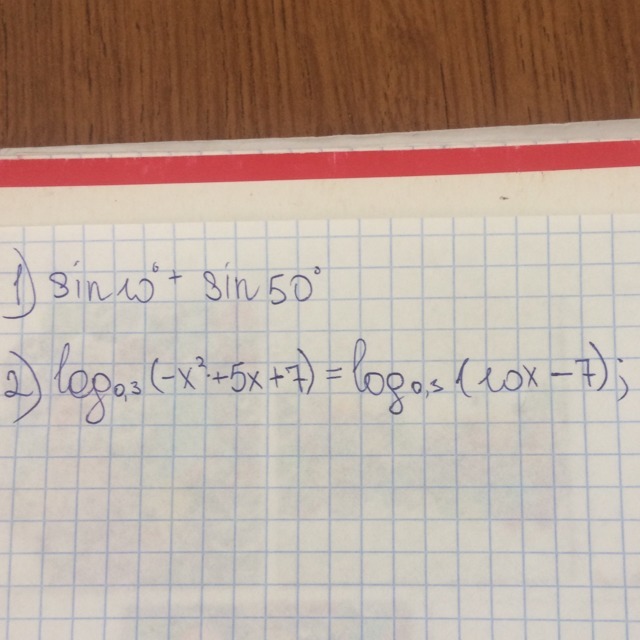 1) sin 10° + sin 50°
2) log₀,₃(-x²+5x+7) = log₀,₃(10x-7);